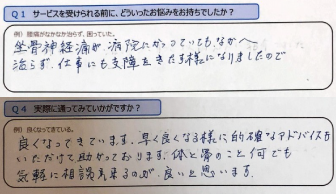 Q1 サービスを受けられる前に、どういったお悩みをお持ちでしたか？
例）腰痛がなかなか治らず、困っていた。
坐骨神経痛が、病院にかよっていてもなかへ
治らず、仕事にも支障をきたす様になりましたので
Q4 実際に通ってみていかがですか？
例）良くなってきている。
良くなってきています。早く良くなる様に的確なアドバイスを
いただけて助かっております。体と骨のこと何でも
気軽に相談出来るのが良いと思います。